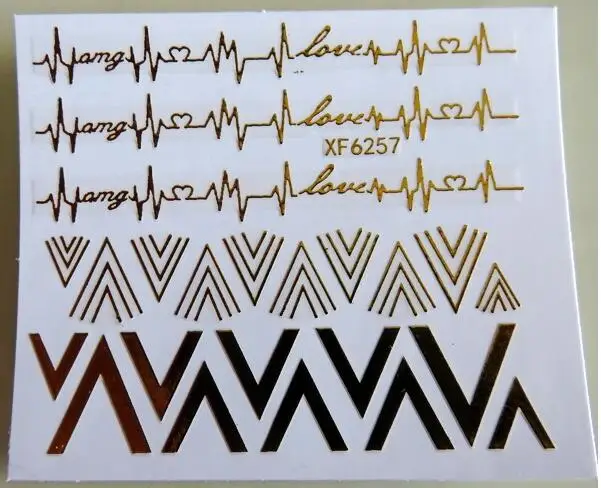 amg love
amg love
XF6257
amg love